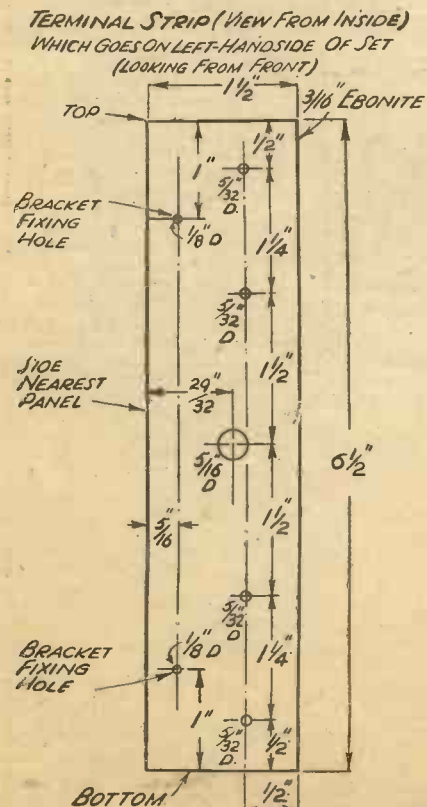 TERMINAL STRIP (VIEW FROM INSIDE)
WHICH GOES ON LEFT-HANDSIDE OF SET
(LOOKING FROM FRONT)
1 1/2"
3/16" EBONITE
TOP
1/2"
1"
5/32" D.
BRACKET
FIXING
HOLE
1/8" D
1 1/4"
5/32" D.
SIDE
NEAREST
PANEL
29/32"
1 1/2"
5/16" D
6 1/2"
5/16"
1 1/2"
5/32" D.
1/8" D
BRACKET
FIXING
HOLE
1 1/4"
1"
5/32" D.
1/2"
BOTTOM
1/2"